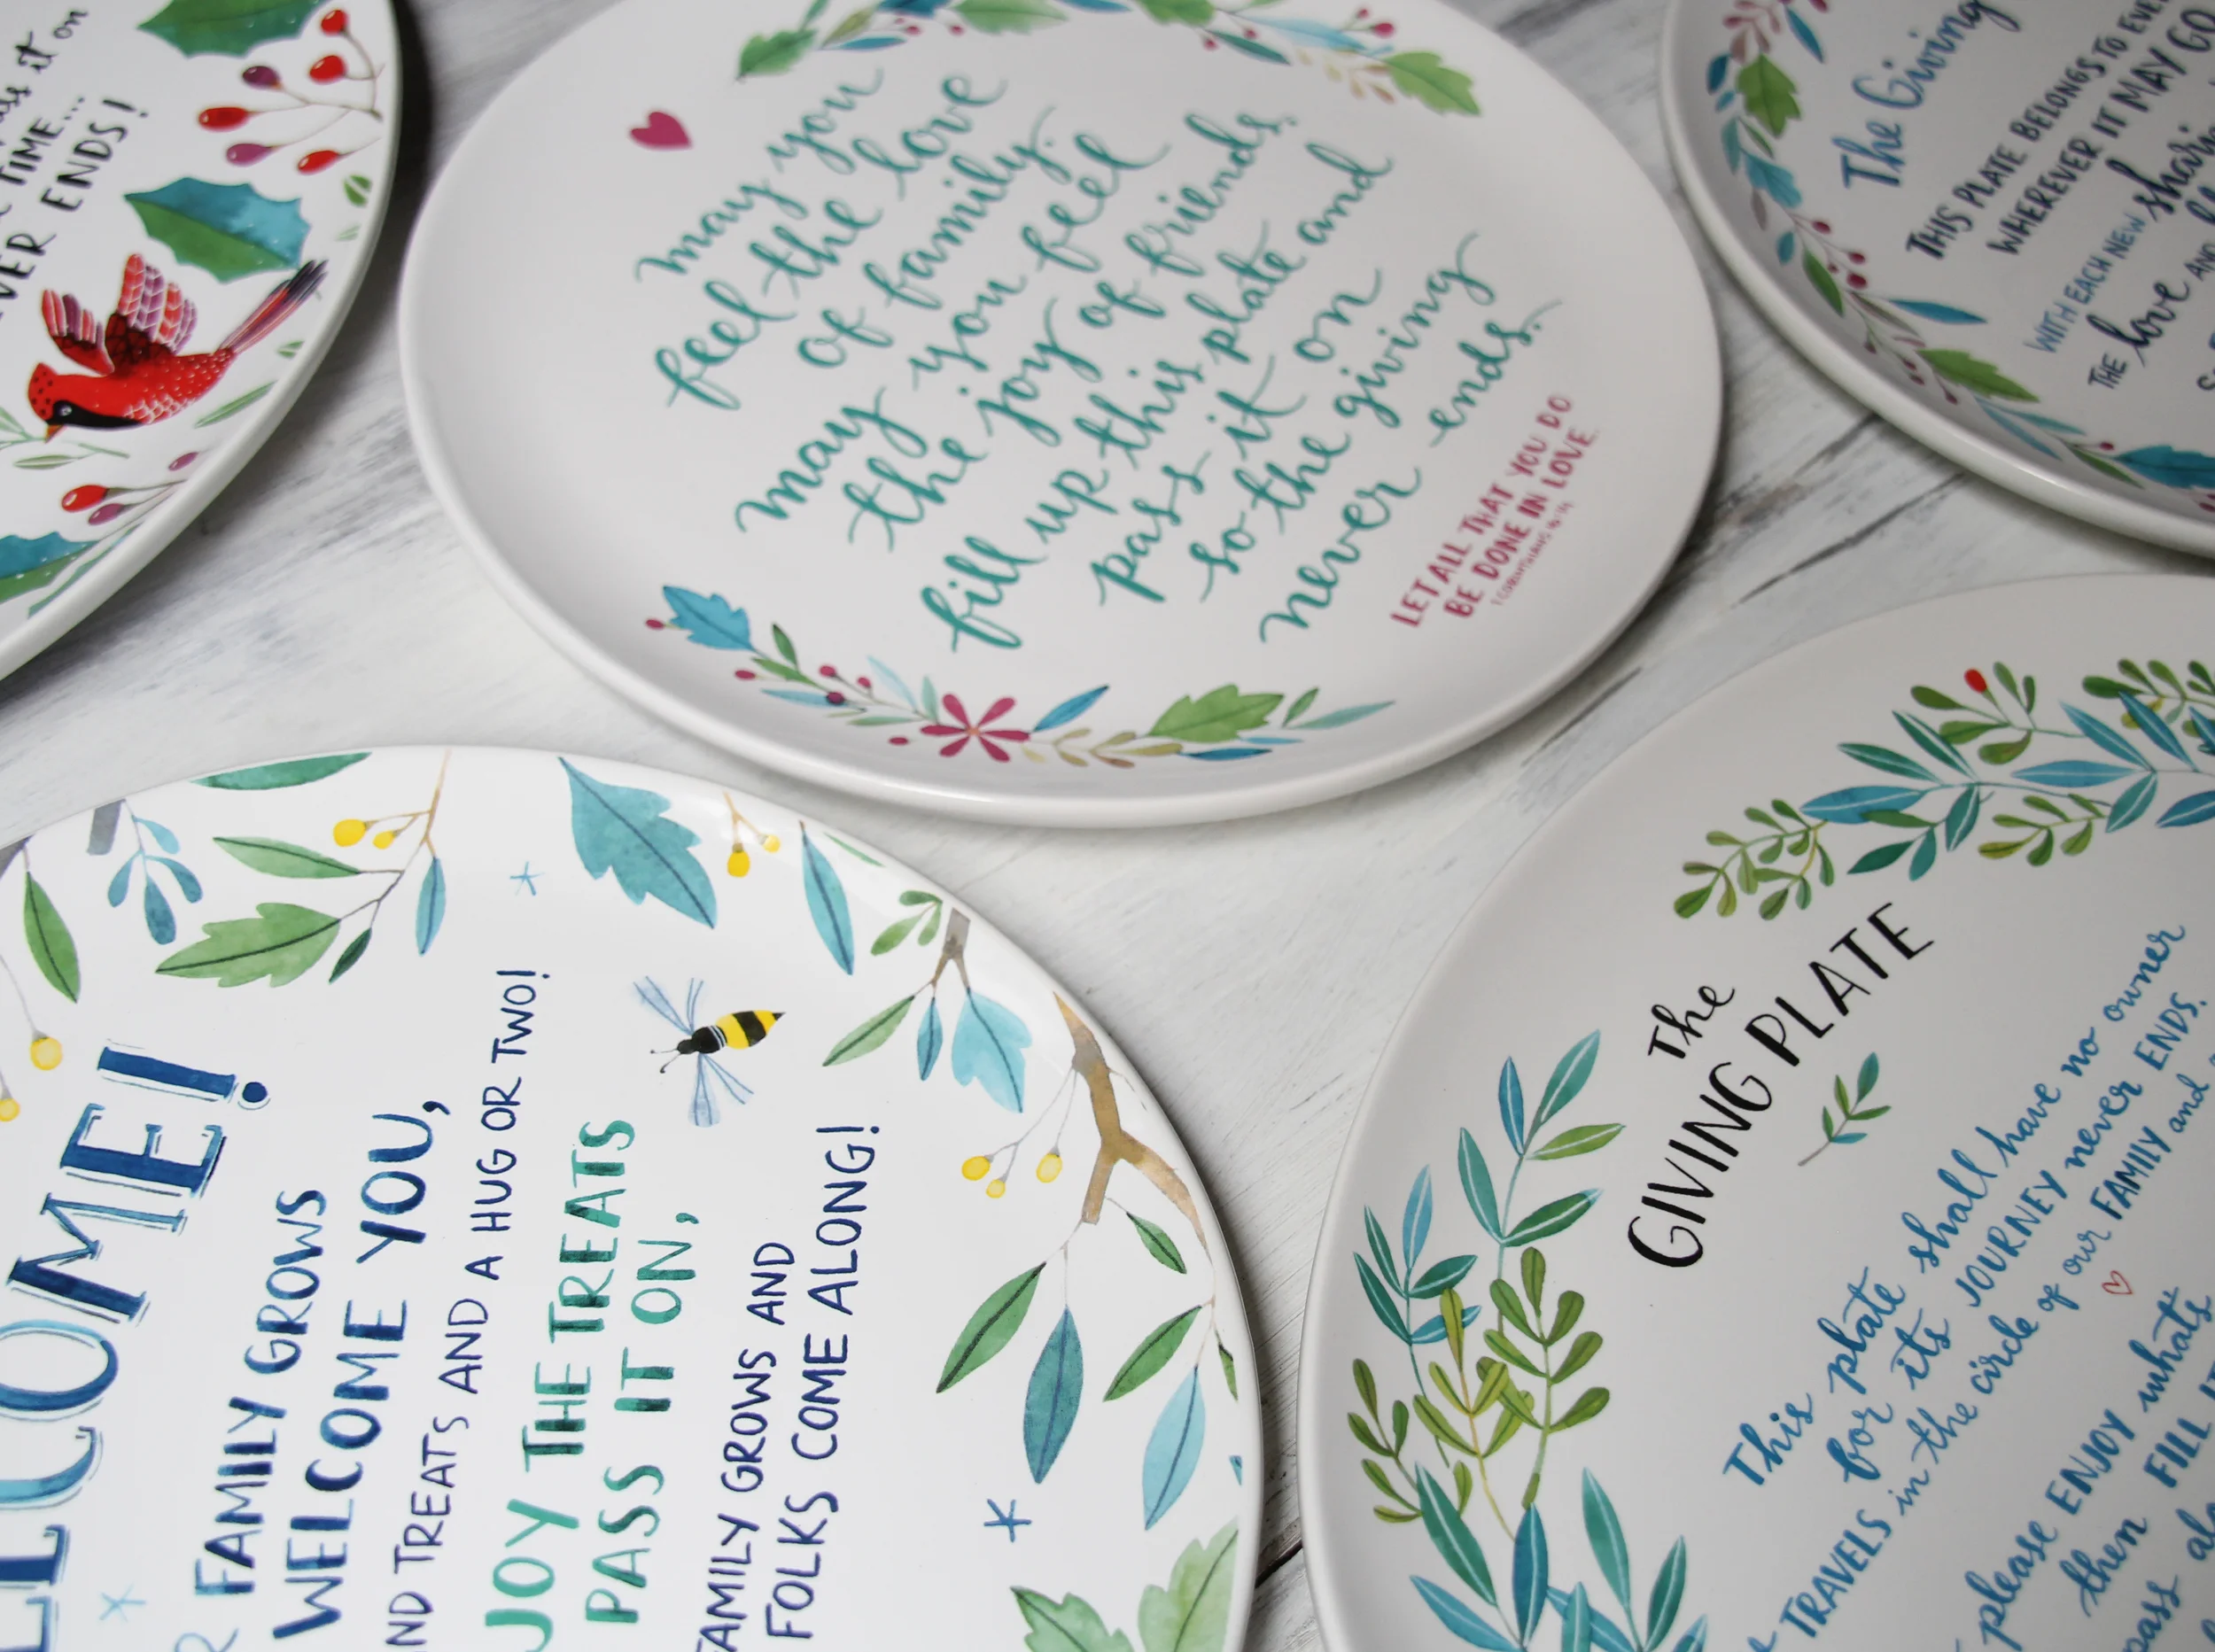 pass it on
TIME...
ENDS!
may you
feel the love
of family.
may you feel
the joy of friends.
fill up this plate and
pass it on
so the giving
never ends.
LET ALL THAT YOU DO
BE DONE IN LOVE.
1 CORINTHIANS 16:14
The Giving
THIS PLATE BELONGS TO
WHEREVER IT MAY GO
WITH EACH NEW
THE love AND
FAMILY GROWS
WELCOME YOU,
TREATS AND A HUG OR TWO!
THE TREATS
PASS IT ON,
FAMILY GROWS AND
FOLKS COME ALONG!
The
GIVING PLATE
This plate shall have no owner
for its JOURNEY never ENDS.
TRAVELS in the circle of our FAMILY and
please ENJOY what's
then FILL
pass